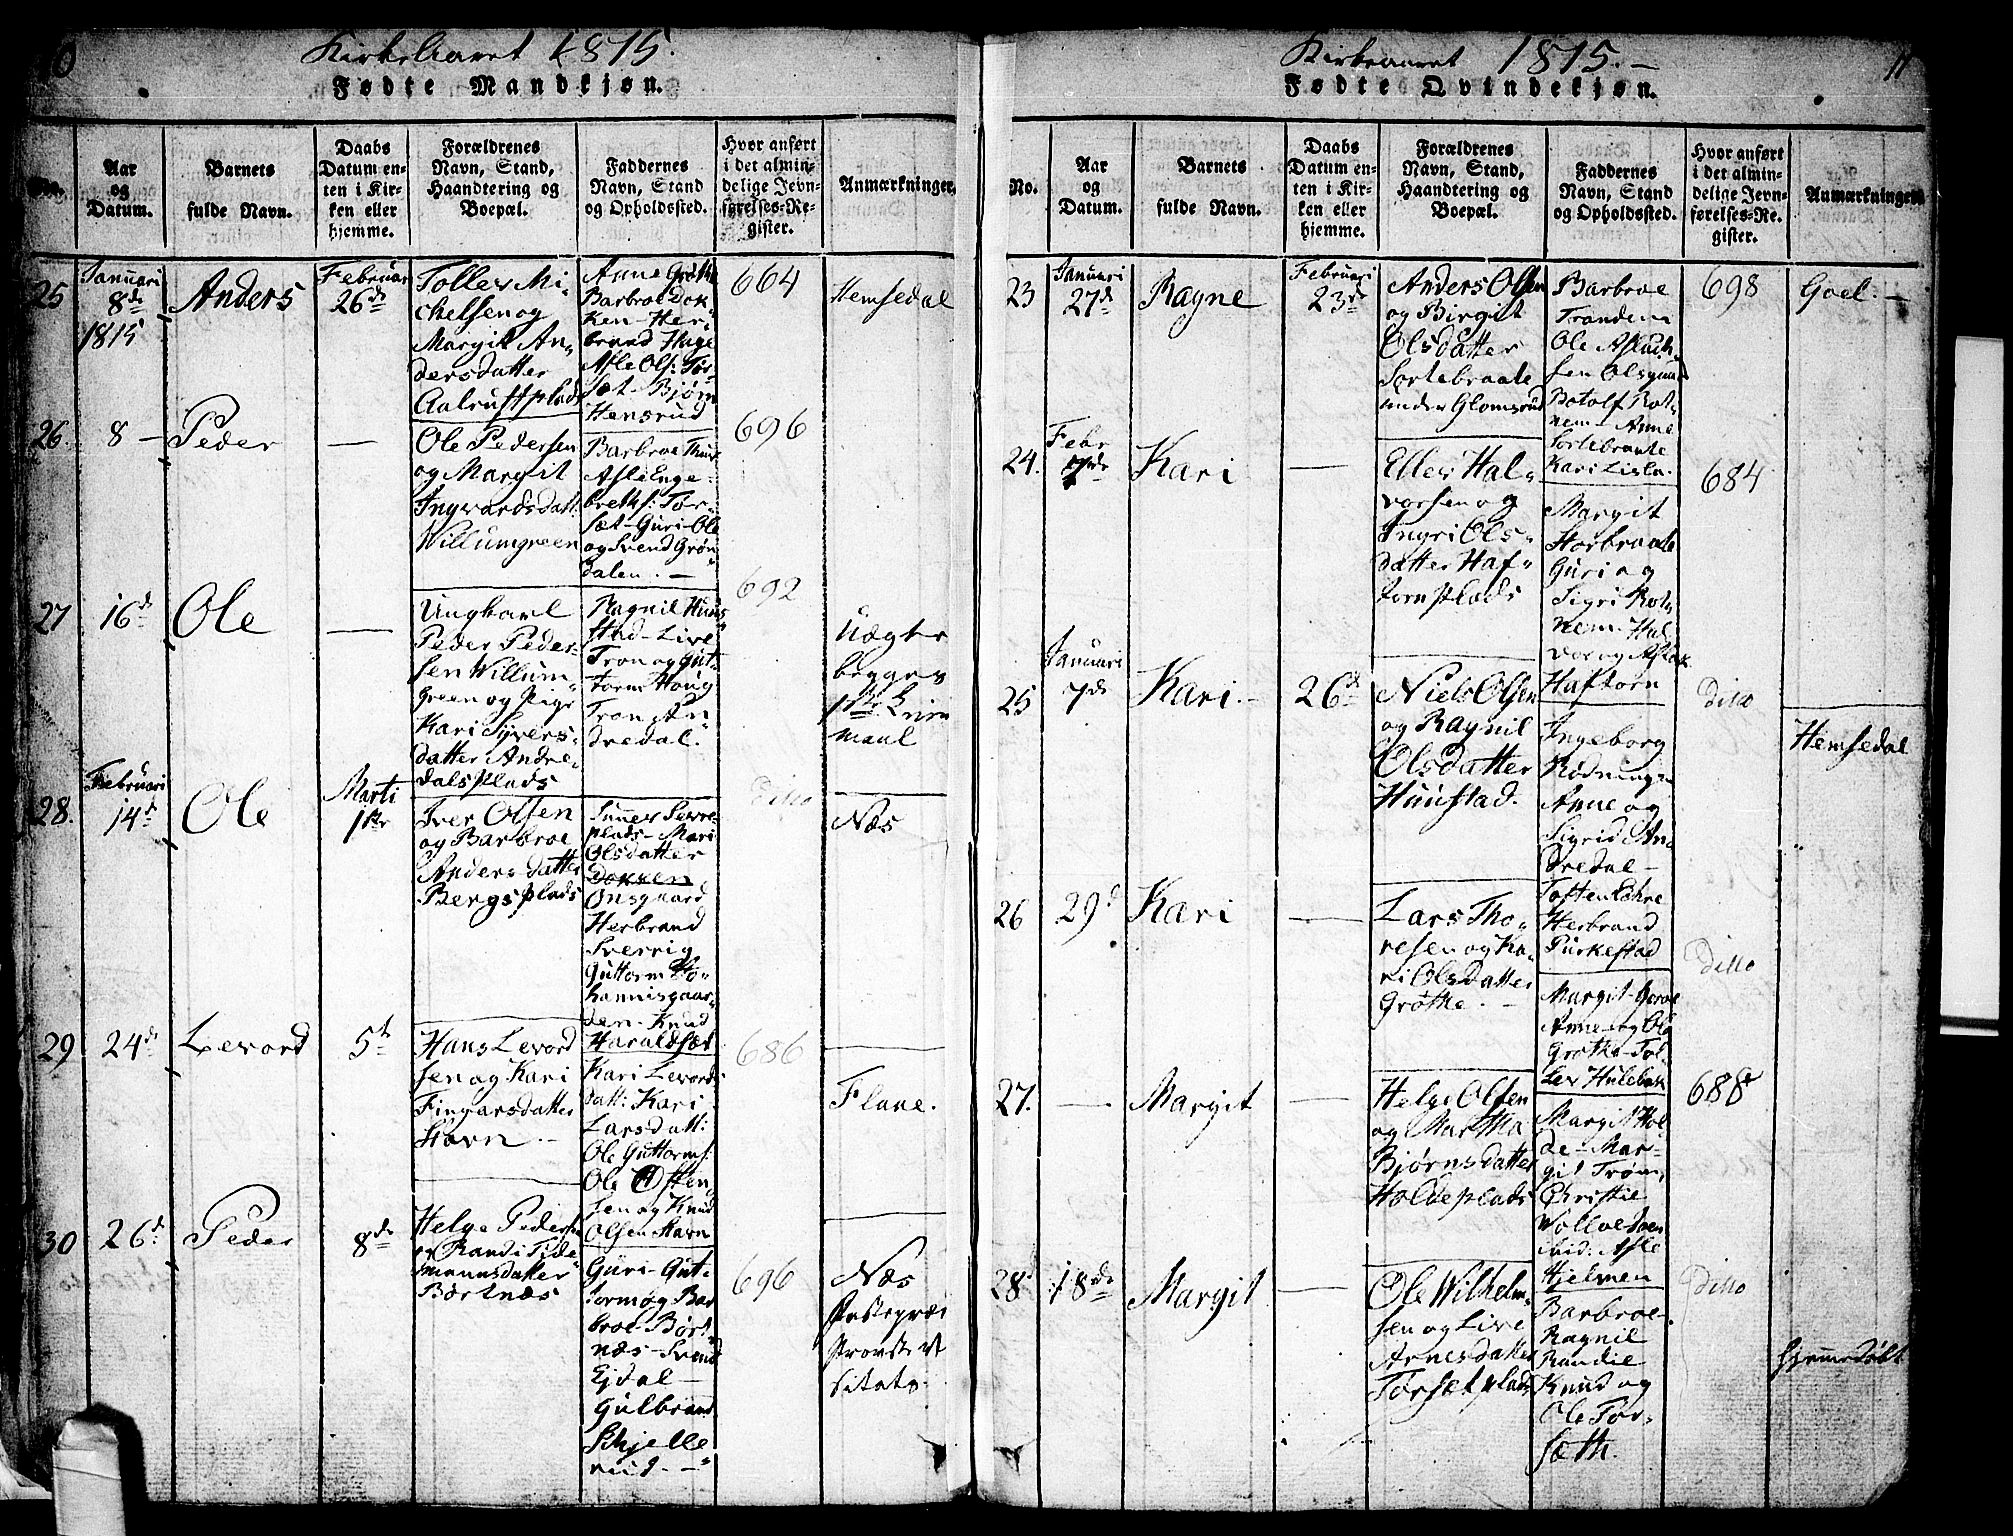 10
Kirke Aaret 1815.
Fødte Mandkjøn.
Aar og Datum.
Barnets fulde Navn.
Daabs Datum enten i Kirken eller hjemme.
Forældrenes Navn, Stand, Haandtering og Boepæl.
Faddernes Navn, Stand og Opholdssted.
Hvor anført i det almindelige Jevnførelses-Register.
Anmærkninger.
25
Januari
8de
1815
Anders
Februar
26de
Toller Mi-
chelsen og
Margit An-
dersdatter
Aalrustplads
Anne Grøthe
Barbroe Dok-
ken - Her-
brand Hage
Asle Ols: Tor-
sæt - Bjørn
Hensrud
664
Hemsedal
26.
8 -
Peder
-
Ole Pedersen
og Margit
Ingvardsdatt:
Willumgreen
Barbroe
Asle Enge-
breths: Tor-
sæt - Guri - Ole
og Svend Grøn-
dalen. -
696
27
16de
Ole
-
Ungkarl
Peder Peder-
sen Willum-
green og Pige
Kari Syvers-
datter Andre-
dalsplads
Ragnil Huus-
stad - Live
Tron og Gut-
torm Houg
Tron An-
dredal.
692
Uægte
begges
1ste Leier-
maal
28.
Februari
14de
Ole
Marti
1ste
Iver Olsen
og Barbroe
Andersdatter
Bergsplads
plads - Mari
Olsdatter
Dokken
Onsgaard
Herbrand
Sverrig
Guttorm Jo-
hannisgaar-
den - Knud
Haraldsæt
ditto
Næs
29
24de
Levord
5te
Hans Levord
sen og Kari
Fingarsdatter
Stavn. -
Kari Levords-
datt: Kari
Larsdatt:
Ole Guttorms:
Ole Often
sen og Knud
Olsen Stavn
686
Flaae.
30
26de
Peder
8de
Helge Peders:
og Randi Tide-
mannsdatter
Børtnæs
Guri - Gut-
torm og Bar-
broe - Børt-
næs - Svend
Ejdal -
Gulbrand
Skjelle
rud. -
696
Næs
Provste Vi-
sitats.
11
Kirkeaaret 1815. -
Fødte Qvindekjøn.
No.
Aar og Datum.
Barnets fulde Navn.
Daabs Datum enten i Kirken eller hjemme.
Forældrenes Navn, Stand, Haandtering og Boepæl.
Faddernes Navn, Stand og Opholdssted.
Hvor anført i det almindelige Jevnførelses-Register.
Anmærkninger
23
Januari
27de
Ragne
Februari
23de
Anders Olsen
og Birgit
Olsdatter
Sortebraate
under Glomsrud
Barbroe
Trandem
Ole Aslach-
sen Olsgaard
Botolf Rot-
nem - Anne
Sortebraate
Kari Lisla.
698
Goel. -
24.
Febr
7de
Kari
-
Eller Hal-
vorsen og
Ingri Ols-
datter Haf-
tornplads
Margit
Storbraate
Guri og
Sigri Rot-
nem. Hal-
vor og Aslak
Haftorn
684
25
Januari
7de
Kari. -
26de
Niels Olsen
og Ragnil
Olsdatter
Huustad.
Ingeborg
Rødningen
Anne og
Sigrid An-
dredal -
Toften Løhre
Herbrand
Purkestad
ditto
Hemsedal
26
29de
Kari
-
Lars Tho-
resen og Ka-
ri Olsdatter
Grøthe. -
Margit
Anne og Ole
Grøthe - Tol-
lev Hulebak
Ditto
27.
-
Margit
-
Helge Olsen
og Martha
Bjørnsdatter
Holdeplads
Margit Hol-
de - Mar-
git Trøm,
Christie
Asle
Hjelmen
688
28
18de
Margit
-
Ole Wilhelm-
sen og Live
Arnesdatter
Torsæt plads
Barbroe -
Ragnil
Randie
Knud og
Ole Tor-
sæth.
Ditto
Hjemmedøbt